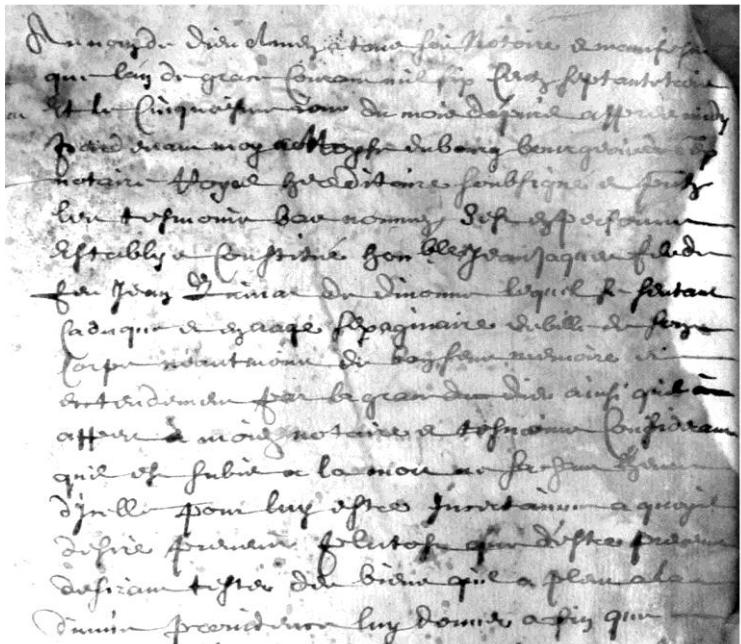 Au nom de dieu Amen a tous soit Notoire e manifeste
que lan de grace Courant mil six Centz septante trois
Et le Cinquoisme jour du mois apres midy
Pardevant moy du bourg bourgeois
notaire Royal hereditaire soubsigné e
les tesmoins bas nommez Est en personne
Estably e Constitué honble Jean Jaques fils de
feu Jean de Divonne lequel se sentant
Caduque e en aage debille de son
Corps neantmoins de bon sens memoire e
entendement par la grace de dieu ainsi quil a
apparu a moi notaire e tesmoins Considerant
quil est subiet a la mort ne sachant lheure
dicelle pour luy estre Incertaine a quoy il
desire prevenir plutost que destre prevenu
desirant tester des biens quil a pleu a la
divine providence luy donner afin que